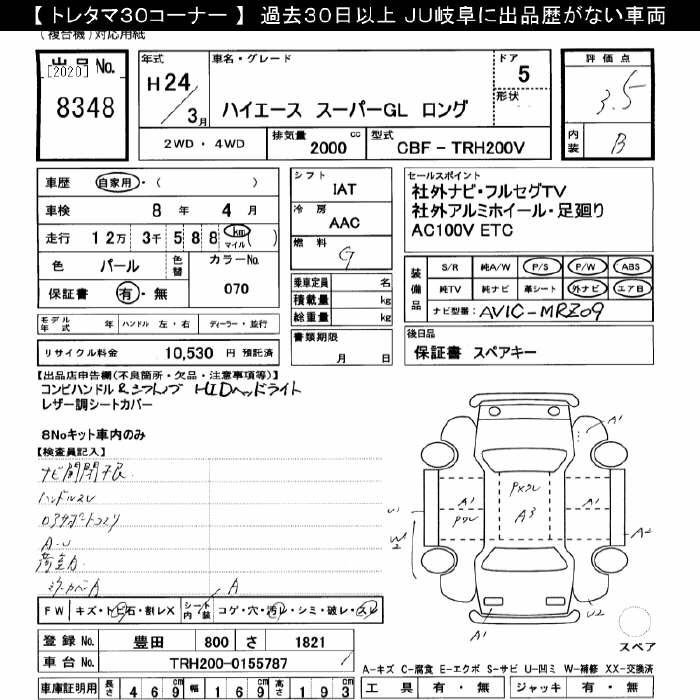 【 トレタマ30コーナー 】 過去30日以上 JU岐阜に出品歴がない車両
(複合機)対応用紙
出品 No.
[2020]
8348
年式
H 24 / 3月
車名・グレード
ハイエース スーパーGL ロング
ドア 5
形状
2WD ・ 4WD
排気量 2000 cc
型式 CBF - TRH200V
評価点
3.5
内装 B
車歴 自家用・( )
車検 8 年 4 月
走行 12万 3千 5 8 8 km マイル ( )
色 パール 色替
カラーNo. 070
保証書 有・無
モデル年式 年 ハンドル 左・右 ディーラー・並行
リサイクル料金 10,530 円 預託済
シフト IAT
冷房 AAC
燃料 G
乗車定員 名
積載量 kg
総重量 kg
書類期限
月 日
セールスポイント
社外ナビ・フルセグTV
社外アルミホイール・足廻り
AC100V ETC
装備品
S/R 純A/W P/S P/W ABS
純TV 純ナビ 革シート 外ナビ エアB
ナビ型番: AVIC-MRZ09
後日品
保証書 スペアキー
【出品店申告欄(不良箇所・欠品・注意事項等)】
コンビハンドル&シフトノブ HIDヘッドライト
レザー調シートカバー
8Noキット車内のみ
【検査員記入】
ナビ開閉不良
ハンドルスレ
A-U
A
FW キズ・トビ石・割レX シート内装 コゲ・穴・汚レ・シミ・破レ・スレ
登録 No. 豊田 800 さ 1821
車台 No. TRH200-0155787
車庫証明用 長さ 469cm 幅 169cm 高さ 193cm
A1
A1
A1
A3
A2
U1
W2
U2
A1
スペア
A-キズ C-腐食 E-エクボ S-サビ U-凹ミ W-補修 XX-交換済
工具 有・無 ジャッキ 有・無